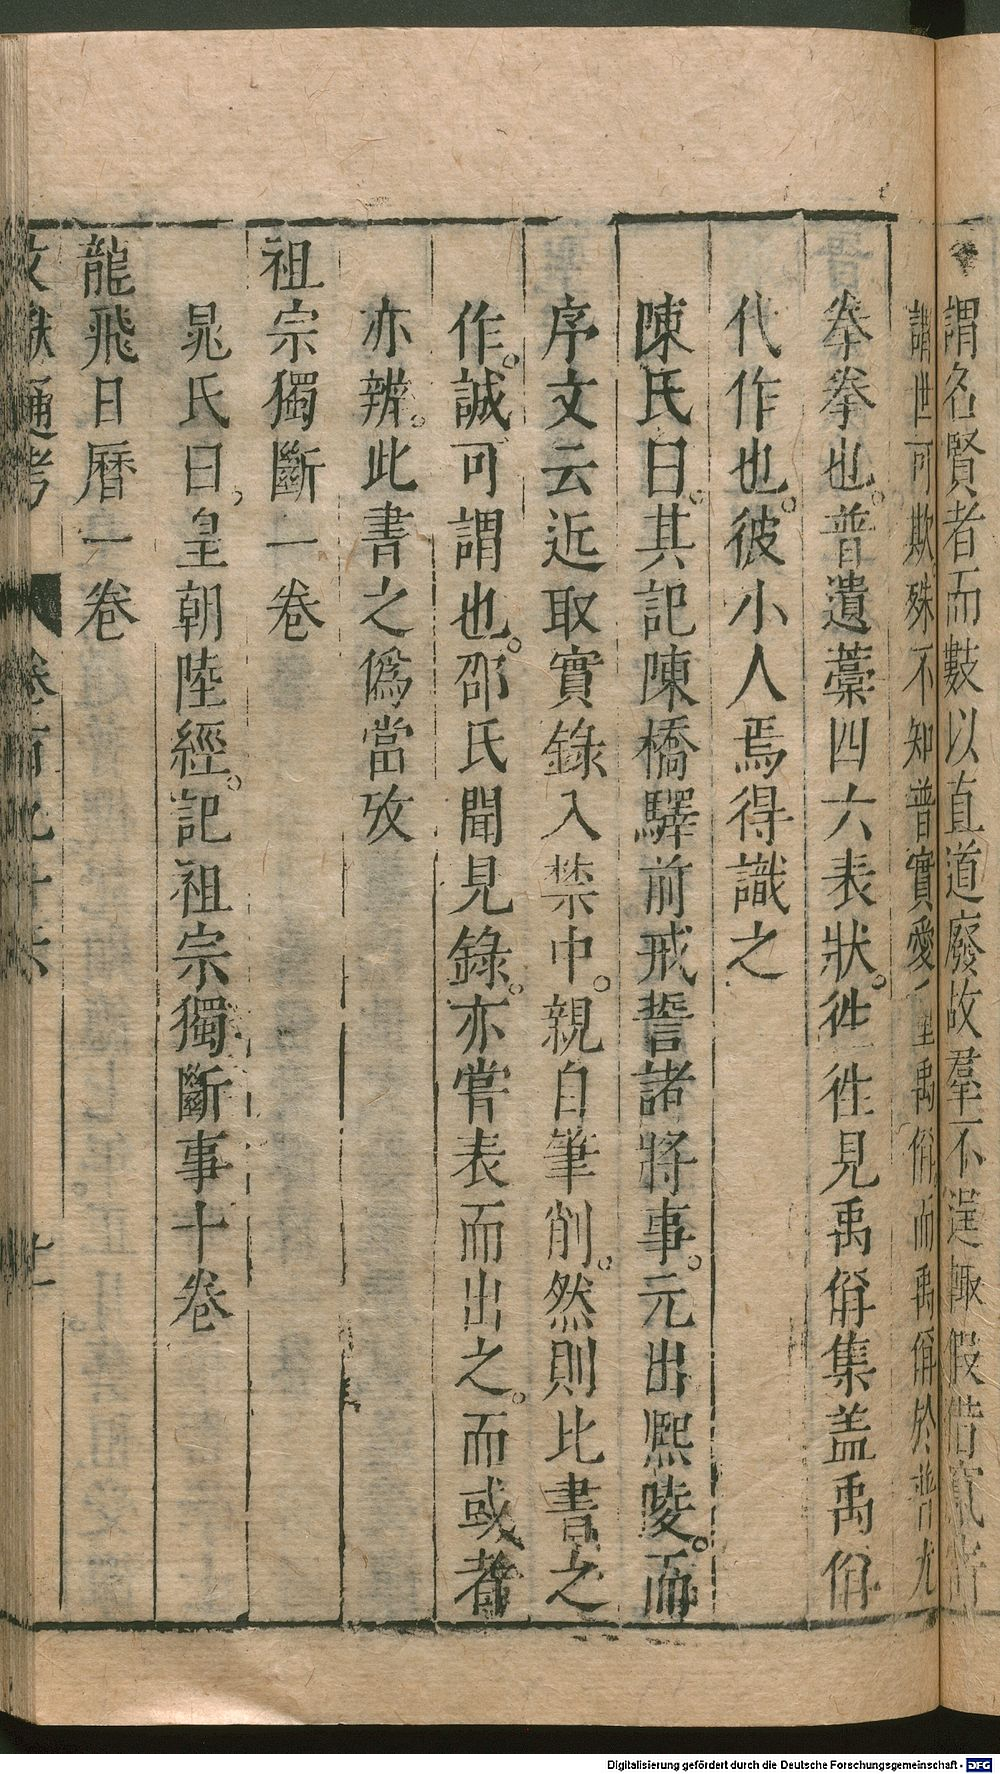 謂名賢者而數以直道廢故羣不逞輒假借竄
謂世可欺殊不知普實愛禹偁而禹偁於普尤
拳拳也。普遺藁四六表狀。徃徃見禹偁集盖禹偁
代作也。彼小人焉得識之
陳氏曰。其記陳橋驛前戒誓諸將事。元出熙陵。而
序文云近取實錄入禁中。親自筆削。然則比書之
作。誠可謂也。邵氏聞見錄。亦嘗表而出之。而或者
亦辨。此書之偽當攷
祖宗獨斷一卷
晁氏曰，皇朝陸經。記祖宗獨斷事十卷
龍飛日曆一卷
文獻通考 卷百九十六 廿
Digitalisierung gefördert durch die Deutsche Forschungsgemeinschaft - DFG